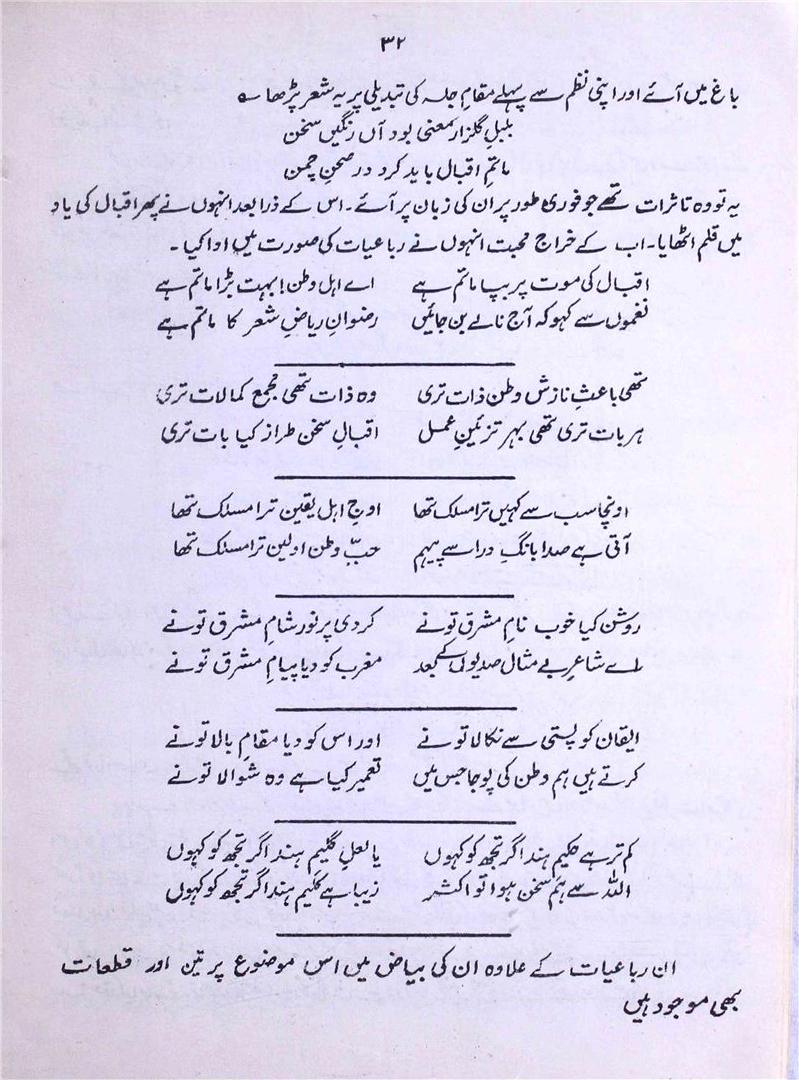 ۳۲
باغ میں آئے اور اپنی نظم سے پہلے مقامِ جلسہ کی تبدیلی پر یہ شعر پڑھا ؎
بلبلِ گلزارِ معنی بود آں رنگیں سخن
ماتمِ اقبال باید کرد در صحنِ چمن
یہ تو وہ تاثرات تھے جو فوری طور پر ان کی زبان پر آئے۔ اس کے ذرا بعد انہوں نے پھر اقبال کی یاد
میں قلم اٹھایا۔ اب کے خراجِ محبت انہوں نے رباعیات کی صورت میں ادا کیا۔
اقبال کی موت پر بپا ماتم ہے اے اہل وطن! بہت بڑا ماتم ہے
نغموں سے کہو کہ آج نالے بن جائیں رضوانِ ریاضِ شعر کا ماتم ہے
تھی باعثِ نازشِ وطن ذات تری وہ ذات تھی مجمع کمالات تری
ہر بات تری تھی بہر تزئینِ عمل اقبالِ سخن طراز کیا بات تری
اونچا سب سے کہیں ترا مسلک تھا اوجِ اہل یقین ترا مسلک تھا
آتی ہے صدا بانگِ درا سے پیہم حبِّ وطن اولین ترا مسلک تھا
روشن کیا خوب نامِ مشرق تو نے کر دی پر نور شامِ مشرق تو نے
اے شاعرِ بے مثال صدیوں کے بعد مغرب کو دیا پیامِ مشرق تو نے
ایقان کو پستی سے نکالا تو نے اور اس کو دیا مقامِ بالا تو نے
کرتے ہیں ہم وطن کی پوجا جس میں تعمیر کیا ہے وہ شوالا تو نے
کم تر ہے حکیمِ ہند اگر تجھ کو کہوں یا لعلِ گلیمِ ہند اگر تجھ کو کہوں
اللہ سے ہم سخن ہوا تو اکثر زیبا ہے کلیمِ ہند اگر تجھ کو کہوں
ان رباعیات کے علاوہ ان کی بیاض میں اس موضوع پر تین اور قطعات
بھی موجود ہیں